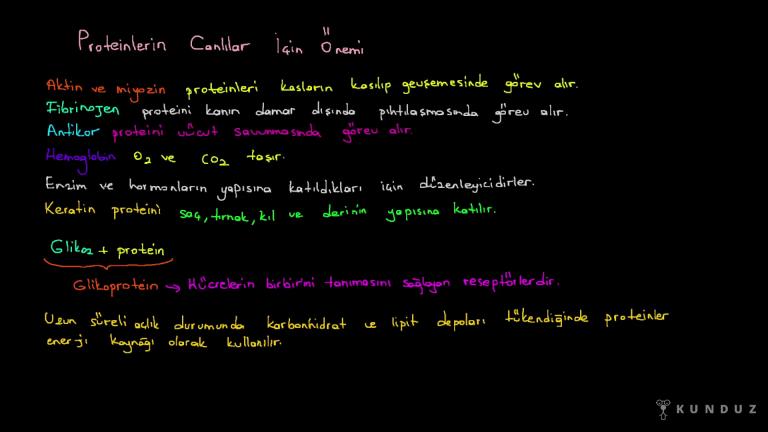 Proteinlerin Canlılar İçin Önemi
Aktin ve miyozin proteinleri kasların kasılıp gevşemesinde görev alır.
Fibrinojen proteini kanın damar dışında pıhtılaşmasında görev alır.
Antikor proteini vücut savunmasında görev alır.
Hemoglobin O₂ ve CO₂ taşır.
Enzim ve hormonların yapısına katıldıkları için düzenleyicidirler.
Keratin proteini saç, tırnak, kıl ve derinin yapısına katılır.
Glikoz + protein
Glikoprotein → Hücrelerin birbirini tanımasını sağlayan reseptörlerdir.
Uzun süreli açlık durumunda karbonhidrat ve lipit depoları tükendiğinde proteinler
enerji kaynağı olarak kullanılır.
KUNDUZ